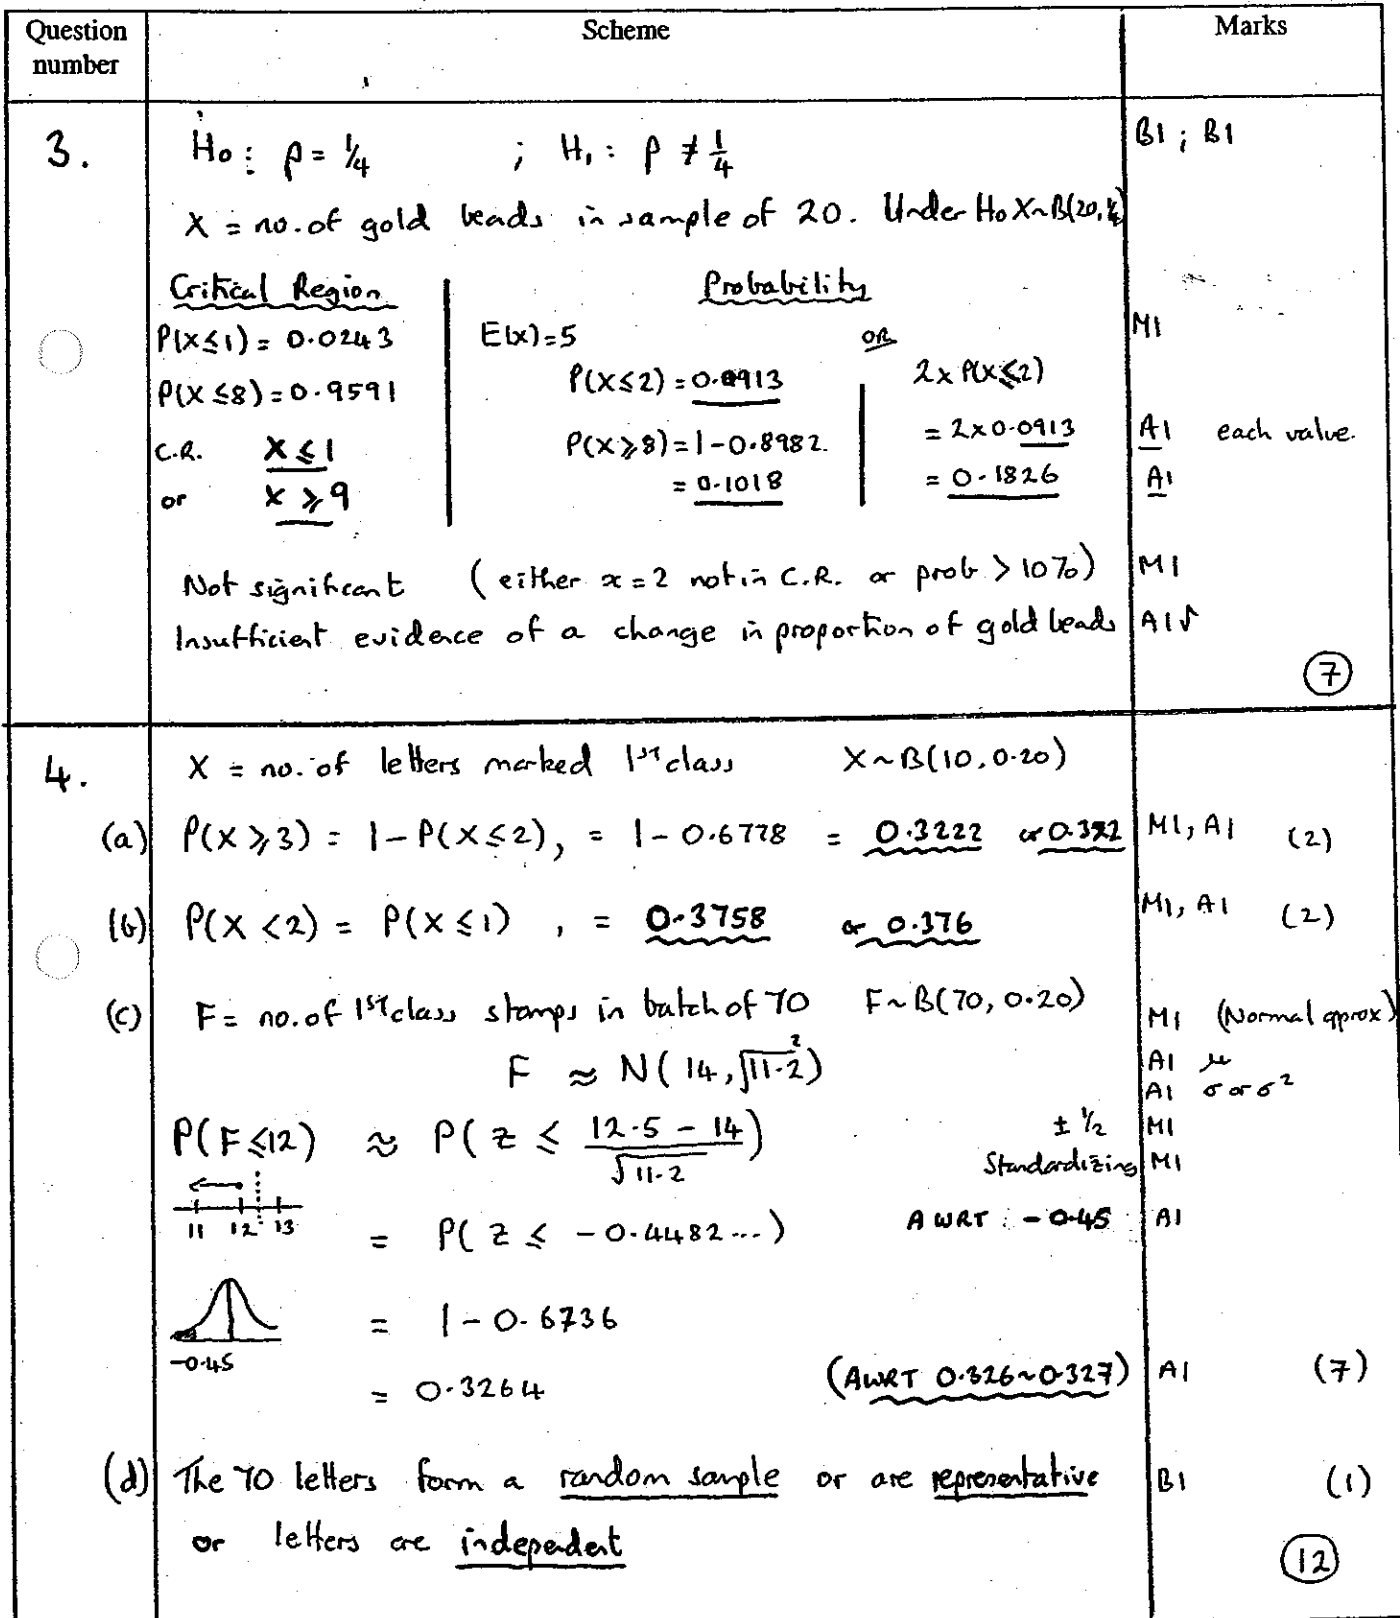 Question number Scheme Marks
3. H₀: p = ¼ ; H₁: p ≠ 1/4 B1 ; B1
X = no. of gold beads in sample of 20. Under H₀ X~B(20, ¼)
Critical Region Probability
P(X≤1) = 0.0243 E(x)=5 OR M1
P(X≤8) = 0.9591 P(X≤2) = 0.0913 2 x P(X≤2)
C.R. X ≤ 1 P(X≥8) = 1-0.8982. = 2x0.0913 A1 each value.
or X ≥ 9 = 0.1018 = 0.1826 A1
Not significant (either x=2 not in C.R. or prob > 10%) M1
Insufficient evidence of a change in proportion of gold beads A1√
7
4. X = no. of letters marked 1st class X~B(10, 0.20)
(a) P(X≥3) = 1-P(X≤2), = 1-0.6778 = 0.3222 or 0.322 M1, A1 (2)
(b) P(X<2) = P(X≤1) , = 0.3758 or 0.376 M1, A1 (2)
(c) F = no. of 1st class stamps in batch of 70 F~B(70, 0.20) M1 (Normal approx)
F ≈ N(14, √11.2²) A1 μ
A1 σ or σ²
P(F≤12) ≈ P(Z ≤ (12.5 - 14)/√11.2) ± ½ M1
Standardizing M1
11 12 13
= P(Z ≤ -0.4482...) AWRT : -0.45 A1
= 1 - 0.6736
-0.45
= 0.3264 (AWRT 0.326~0.327) A1 (7)
(d) The 70 letters form a random sample or are representative B1 (1)
or letters are independent
12